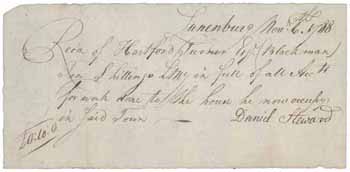 Lunenburg Nov. 6.
Recd of Hartford Turner Esq. Blackman
Ten Shillings LMy in full of all Accts
for work done to the house he now occupys
in said Town —
Daniel Steward
£0.10.0